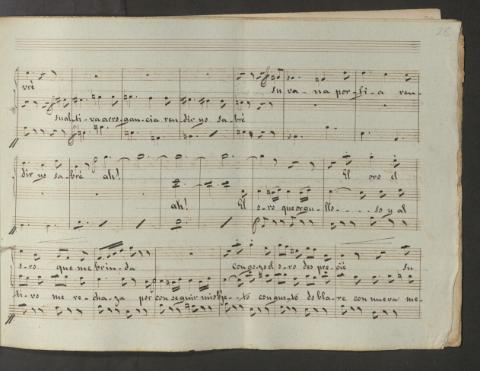 vré su va-na por-fi-a ren-
su al-ti-va a rro-gan-cia ren-dir yo sa-bré
dir yo sa-bré ah! El oro el
ah! El o-ro que orgu-llo-so y al
o-ro que me brin-da con gozo el oro des pre-cié su
ti-vo me re-cha-za por con seguir mi obje-to con gus-to do bla-re con nueva me-